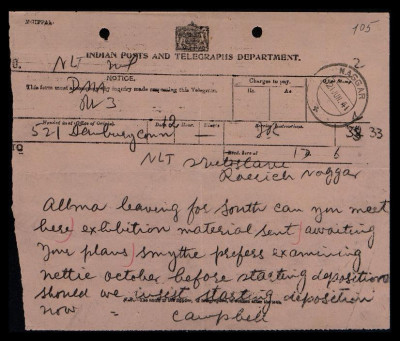 105
INDIAN POSTS AND TELEGRAPHS DEPARTMENT.
NLT
2
NOTICE.
This form must accompany any inquiry made respecting this Telegram.
Charges to pay.
Rs. As.
NAGGAR
Handed in at (Office of Origin).
521 Danbury conn 12
33
TO
Recd. here at 17 6
NLT
Roerich Naggar
Allma leaving for South can you meet
here) exhibition material sent) awaiting
Your plans) smythe prefers examining
nettie october before starting deposition
should we insist starting deposition
now =
Campbell